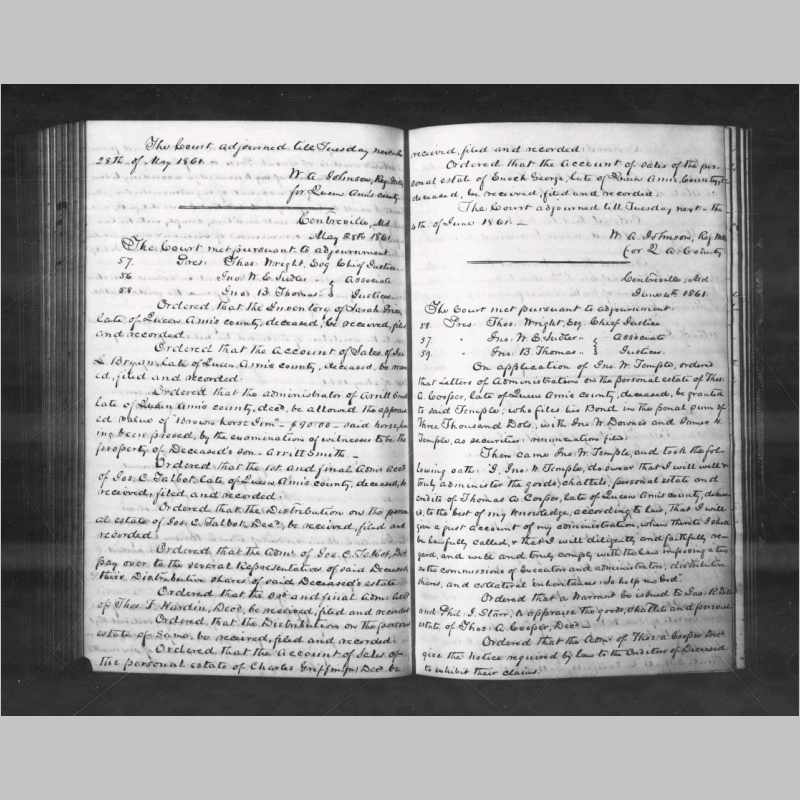 The Court adjourned till Tuesday next the
28th of May 1861.
W. A. Johnson, Reg. Wills
for Queen Ann's County
Centreville, Md
May 28th 1861
The Court met pursuant to adjournment
57. Pres. Thos. Wright, Esq Chief Justice
56 " Jno. W. E. Sudler } Associate
58 " Jno. B. Thomas } Justices
Ordered that the Inventory of Sarah
late of Queen Ann's county, deceased, be received, filed
and recorded.
Ordered that the Account of Sales of
L Bryan, late of Queen Ann's county, deceased, be
ed, filed and recorded.
Ordered that the administrator of Arrill Smith
late of Queen Ann's county, decd, be allowed the apprais
ed value of "Brown horse Jim" $90.00 - said horse
ing been proved, by the examination of witnesses to be the
property of Deceased's son - Arrill Smith -
Ordered that the 1st and final Adm. acct.
of Jos. C. Talbot, late of Queen Ann's county, deceased, be
received, filed and recorded.
Ordered that the Distribution on the person
al estate of Jos. C. Talbot, Decd, be received, filed and
recorded.
Ordered that the Admr. of Jos. C. Talbot, Decd
pay over to the several Representatives of said Deceased
their Distributive shares of said Deceased's estate
Ordered that the and final Adm.
of Thos. F. Hardin, Decd, be received, filed and recorded
Ordered that the Distribution on the personal
estate of Same, be received, filed and recorded.
Ordered that the Account of Sales of
the personal estate of Charles Griffin, Decd, be
received, filed and recorded.
Ordered that the Account of Sales of the per-
sonal estate of Enoch George, late of Queen Ann's County,
deceased, be received, filed and recorded.
The Court adjourned till Tuesday next the
4th of June 1861. -
W. A. Johnson, Reg. Wills
for Q A. County
Centreville, Md
June 4th 1861.
The Court met pursuant to adjournment.
58. Pres. Thos. Wright, Esq. Chief Justice
57. " Jno. W. E. Sudler } Associate
59. " Jno. B. Thomas } Justices.
On application of Jno. W. Temple, ordered
that Letters of Administration on the personal estate of Thos.
A. Cooper, late of Queen Ann's county, deceased, be granted
to said Temple, who files his Bond in the penal sum of
Three Thousand Dols, with Jno. W. Downes and James H.
Temple, as securities renunciation filed.
Then came Jno. W. Temple, and took the fol-
lowing oath: "I, Jno. W. Temple, do swear that I will well &
truly administer the goods, chattels, personal estate and
credits of Thomas A. Cooper, late of Queen Ann's county, deceas
ed, to the best of my knowledge, according to law, that I will
give a just account of my administration, when thereto I shall
be lawfully called, & that I will diligently and faithfully re-
gard, and well and truly comply with the law imposing a tax
on the commissions of Executors and administrators, distributive
shares, and collateral inheritances. So help me God"
Ordered that a Warrant be issued to Jno. R.
and Phil. J. Starr, to appraise the goods, chattels and personal
estate of Thos. A. Cooper, Decd. -
Ordered that the Admr of Thos. A Cooper Decd
give the Notice required by law to the Creditors of Deceased
to exhibit their claims.